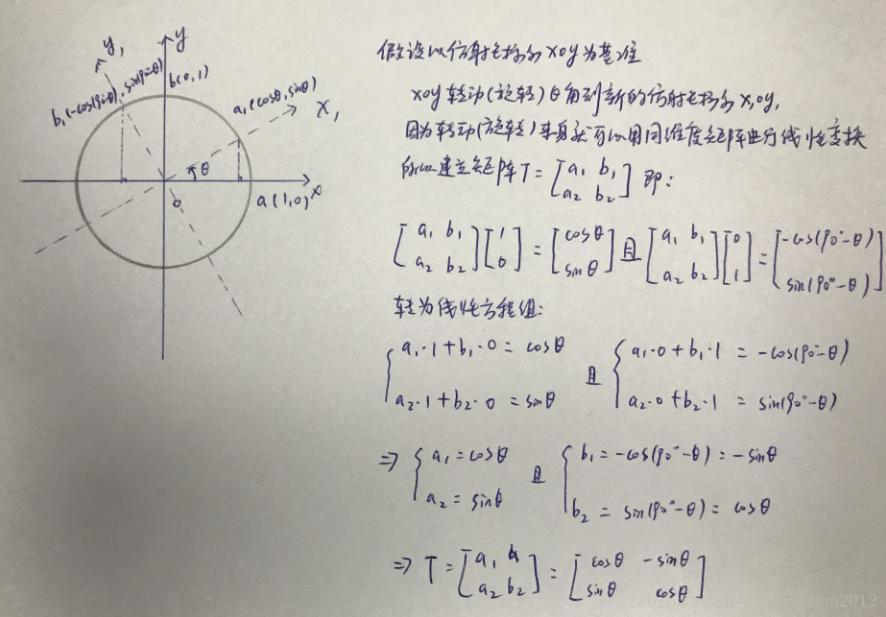 y₁
y
b(0,1)
b₁(-cos(90°-θ), sin(90°-θ))
a₁(cosθ, sinθ)
x₁
θ
o
a(1,0)
x
假设以仿射坐标系xoy为基准
xoy转动(旋转)θ角到新的仿射坐标系x₁oy₁
因为转动(旋转)本身就可以用同维度矩阵进行线性变换
所以建立矩阵T=[a₁ b₁; a₂ b₂] 即:
[a₁ b₁; a₂ b₂][1; 0]=[cosθ; sinθ] 且 [a₁ b₁; a₂ b₂][0; 1]=[-cos(90°-θ); sin(90°-θ)]
转为线性方程组:
{a₁·1+b₁·0=cosθ 且 {a₁·0+b₁·1=-cos(90°-θ)
a₂·1+b₂·0=sinθ a₂·0+b₂·1=sin(90°-θ)
⇒ {a₁=cosθ 且 {b₁=-cos(90°-θ)=-sinθ
a₂=sinθ b₂=sin(90°-θ)=cosθ
⇒ T=[a₁ b₁; a₂ b₂]=[cosθ -sinθ; sinθ cosθ]